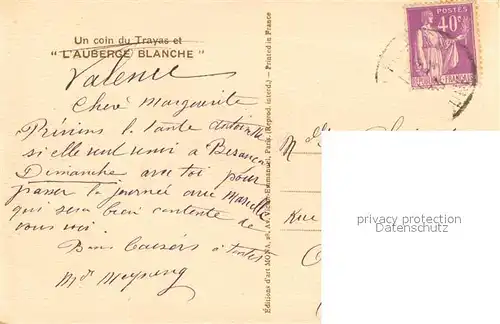 Un coin du Trayas et
" L'AUBERGE BLANCHE "
Valence
Chère Marguerite
Préviens la tante
si elle veut venir à Besançon
Dimanche avec toi pour
passer la journée avec Marcelle
qui sera bien contente de
vous voir.
Bons baisers à toutes
Editions d'art MONA, Av. Victor-Emmanuel, Paris. (Reprod. interd.) - Printed in France
POSTES
40c
REPUBLIQUE FRANÇAISE
Mlle
Rue
privacy protection
privacy protection